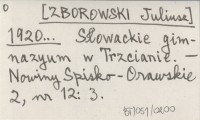 0
[ZBOROWSKI Juliusz]
1920... Słowackie gim-
nazyum w Trzcianie. —
Nowiny Spisko-Orawskie
2, nr 12: 3.